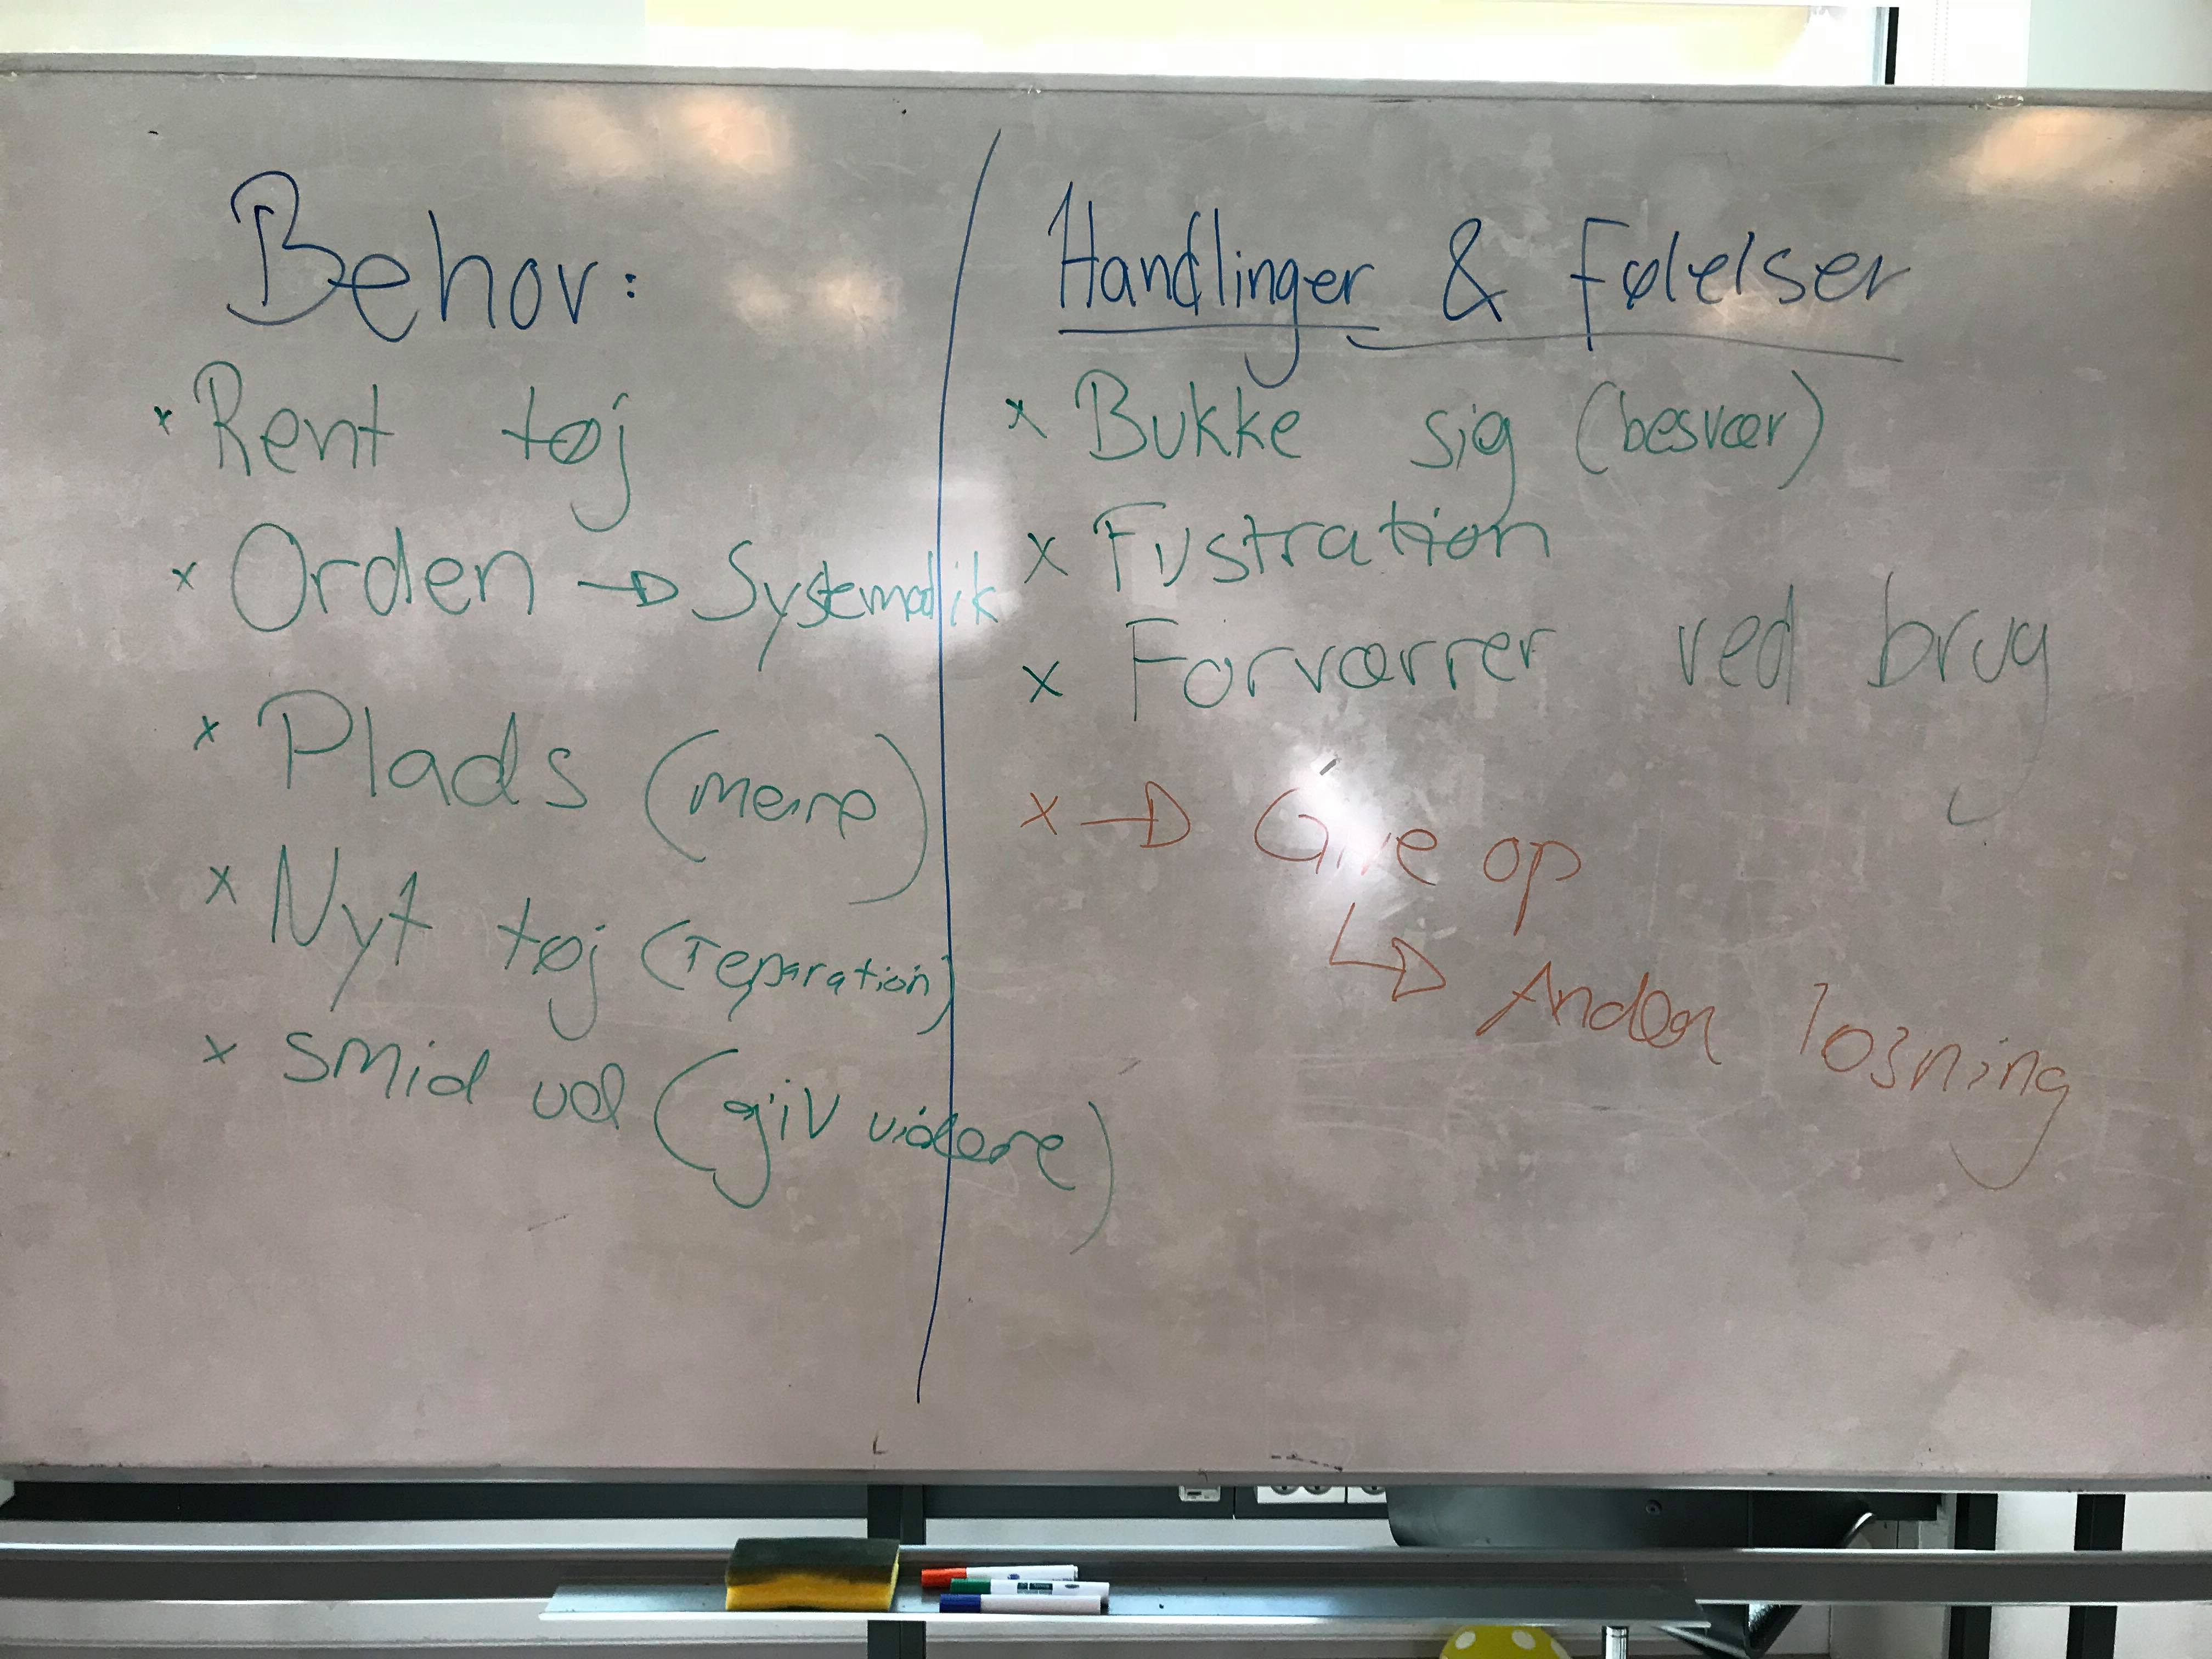 Behov:
× Rent tøj
× Orden → Systematik
× Plads (mere)
× Nyt tøj (reparation)
× Smid ud (giv videre)
Handlinger & Følelser
× Bukke sig (besvær)
× Fustration
× Forværrer ved brug
× → Give op
↳ Anden løsning